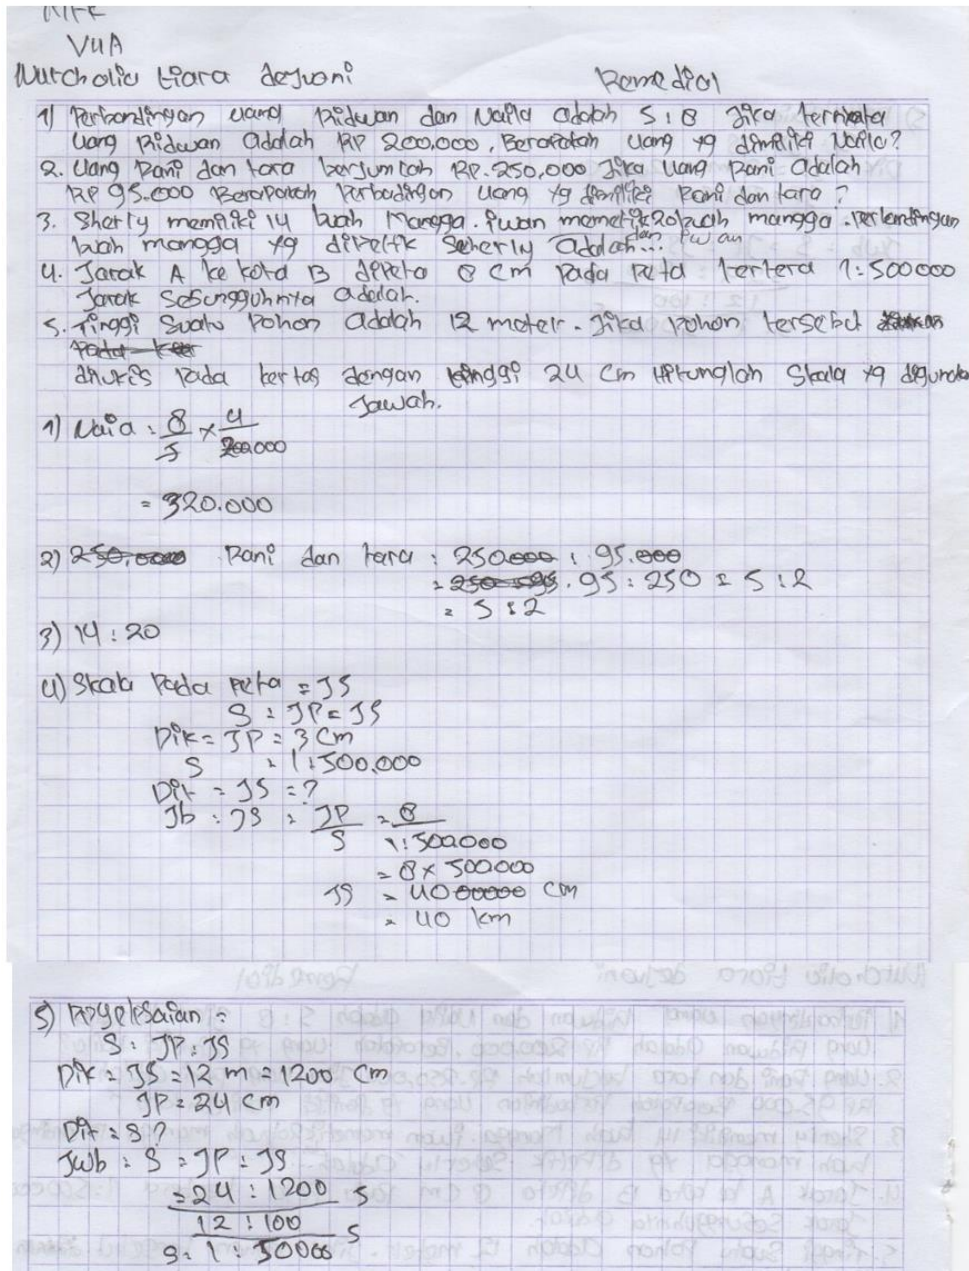 VIIA
Nurcholic tiara desvani Remedial
1) Perbandingan uang Ridwan dan Naila adalah 5 : 8 Jika ternyata
Uang Ridwan adalah RP 200.000, Berapakah uang yg dimiliki Naila?
2. Uang Rani dan tara berjumlah RP. 250.000 Jika uang Rani adalah
RP 95.000 Berapakah Perbadingan uang yg dimiliki Rani dan tara ?
3. Sherly memiliki 14 buah Mangga. iwan memetik 20 buah mangga. Perbandingan
buah mangga yg dipetik Seherly dan iwan adalah...
4. Jarak A ke kota B dipeta 8 cm Pada Peta tertera 1:500000
Jarak Sesungguhnita adalah.
5. Tinggi Suatu Pohon adalah 12 meter. Jika pohon tersebut
dilukis Pada kertas dengan tinggi 24 cm Hitunglah Skala yg digunaka
Jawab.
1) Naia : 8/5 × 4/200000
= 320.000
2) 250.000 Rani dan tara : 250.000 : 95.000
= 250 : 95 . 95 : 250 = 5 : 2
= 5 : 2
3) 14 : 20
4) Skala Pada Peta = JS
S : JP = JS
Dik = JP = 3 Cm
S = 1:500.000
Dit = JS = ?
Jb : JS = JP/S = 8/1:500000
= 8 × 500000
JS = 4000000 cm
= 40 km
5) Penyelesaian =
S : JP : JS
Dik = JS = 12 m = 1200 Cm
JP = 24 Cm
Dit = S ?
Jwb : S = JP : JS
= 24 : 1200 S
12 : 100 S
S = 1 : 50000